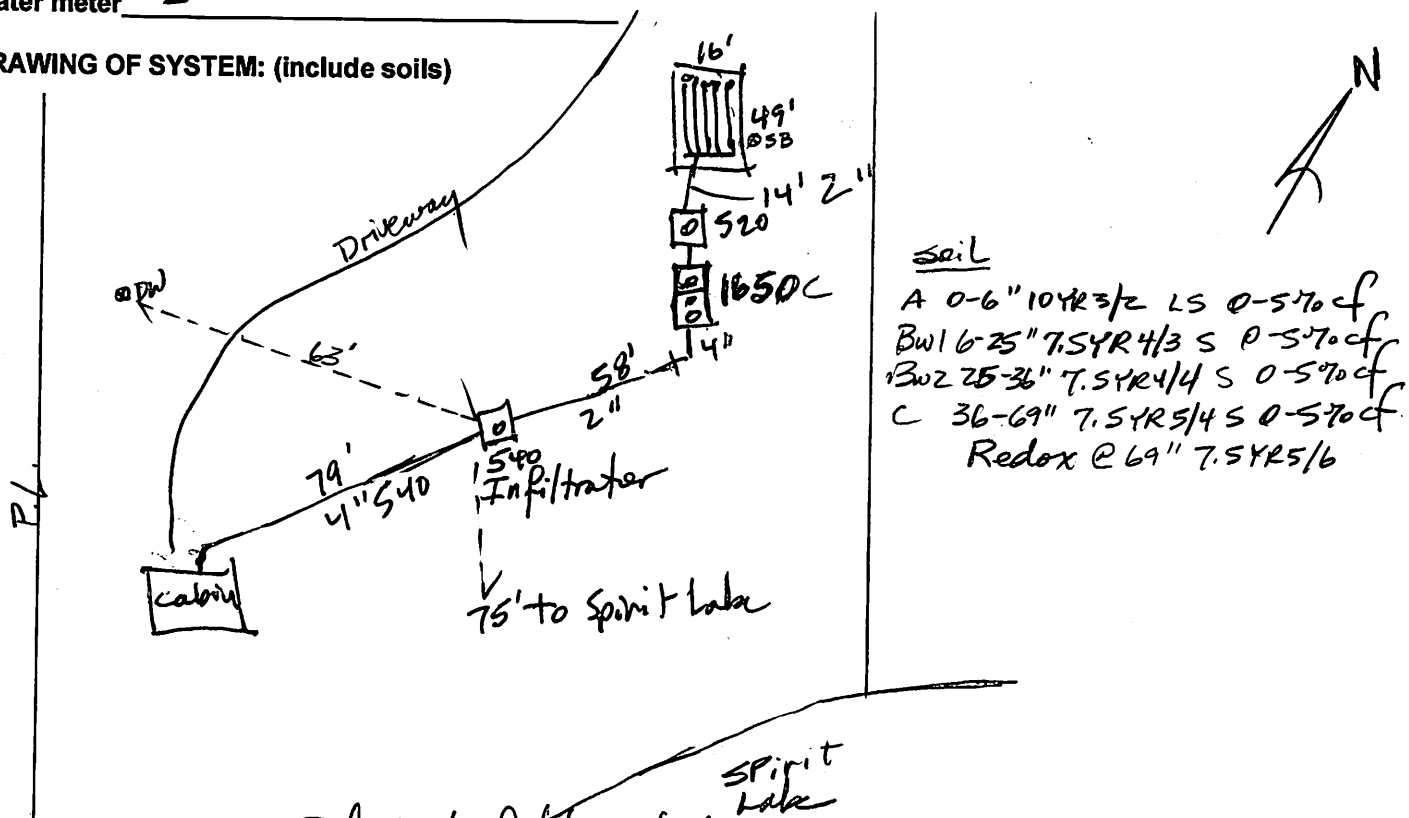 ater meter
RAWING OF SYSTEM: (include soils)
N
16'
49'
SB
14' 2"
520
1650C
4"
Driveway
DW
63'
58'
2"
79'
4" S40
540
Infiltrator
cabin
P/L
75' to Spirit Lake
Spirit
Lake
soil
A 0-6" 10YR3/2 LS 0-5% cf
Bw1 6-25" 7.5YR4/3 S 0-5% cf
Bw2 25-36" 7.5YR4/4 S 0-5% cf
C 36-69" 7.5YR5/4 S 0-5% cf
Redox @ 69" 7.5YR5/6